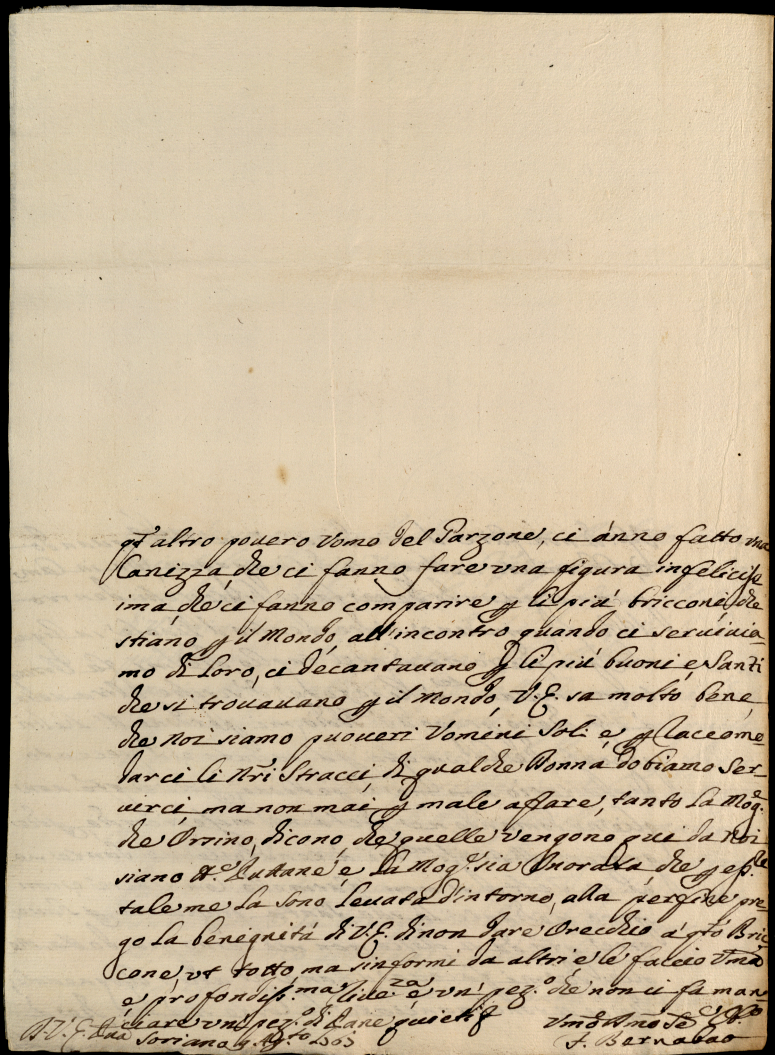 altro povero Vomo del Parzone, ci ánno fatto vna
Canizza, che ci fanno fare vna figura infelicis=
ima, che ci fanno comparire p li piú bricconi, che
stiano p il Mondo, all'incontro quando ci serviua=
mo di Loro, ci décantauano p li piú buoni e Santi
che si trouauano p il Mondo, V.E. sa molto bene,
che Noi siamo pouueri Vomini Soli é p
darci li Nri Stracci, di qualche Donna dobiamo Ser=
uirci, ma non mai p male affare, tanto La Mog.e
che Orsino, dicono, che quelle vengono qui da Noi
siano é La Mog.e sia Onorata che p
tale me La sono Leuata d'intorno, alla perfine pre=
go La benegnitá di V.E. di non dare Orecchio á Bric=
cone, vt totto, ma s'informi da altri e le faccio
e profondiss.ma é un' pez.o che non ci fa man=
ciare vn' pez.o di Pane quieti
Di V.E. Soriano
F. Bernabao